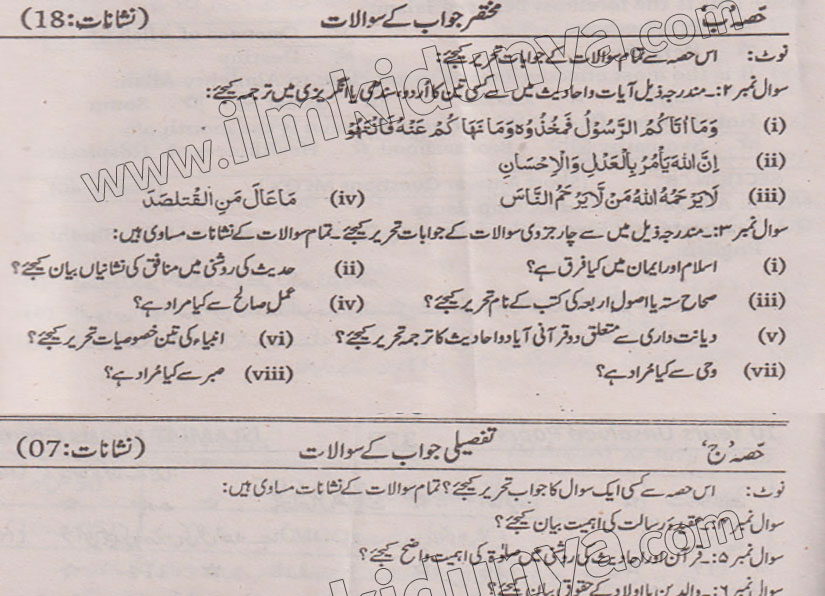 حصہ 'ب' مختصر جواب کے سوالات (نشانات:18)
نوٹ: اس حصہ سے تمام سوالات کے جوابات تحریر کیجئے:
سوال نمبر ۲:۔ مندرجہ ذیل آیات و احادیث میں سے کسی تین کا اُردو، سندھی یا انگریزی میں ترجمہ کیجئے:
(i) وَمَا اٰتَا كُمُ الرَّسُوْلُ فَخُذُوْهُ وَمَا نَهَا كُمْ عَنْهُ فَانْتَهُوْ
(ii) اِنَّ اللهَ يَاْمُرُ بِالْعَدْلِ وَالْاِحْسَانِ
(iii) لَا يَرْحَمُهُ اللهُ مَنْ لَّا يَرْحَمُ النَّاسَ (iv) مَا عَالَ مَنِ الْقُتلصَدَ
سوال نمبر ۳:۔ مندرجہ ذیل میں سے چار جزوی سوالات کے جوابات تحریر کیجئے۔ تمام سوالات کے نشانات مساوی ہیں:
(i) اسلام اور ایمان میں کیا فرق ہے؟ (ii) حدیث کی روشنی میں منافق کی نشانیاں بیان کیجئے؟
(iii) صحاح ستہ یا اصول اربعہ کی کتب کے نام تحریر کیجئے؟ (iv) عمل صالح سے کیا مراد ہے؟
(v) دیانت داری سے متعلق دو قرآنی آیا دو احادیث کا ترجمہ تحریر کیجئے؟ (vi) انبیاء کی تین خصوصیات تحریر کیجئے؟
(vii) وحی سے کیا مُراد ہے؟ (viii) صبر سے کیا مُراد ہے؟
حصہ 'ج' تفصیلی جواب کے سوالات (نشانات:07)
نوٹ: اس حصہ سے کسی ایک سوال کا جواب تحریر کیجئے؟ تمام سوالات کے نشانات مساوی ہیں:
سوال نمبر ۴:۔ عقیدہ رسالت کی اہمیت بیان کیجئے؟
سوال نمبر ۵:۔ قرآن اور احادیث کی روشنی میں صلوٰۃ کی اہمیت واضح کیجئے؟
سوال نمبر ۶:۔ والدین یا اولاد کے حقوق بیان کیجئے؟
www.ilmkidunya.com
kidunya.com